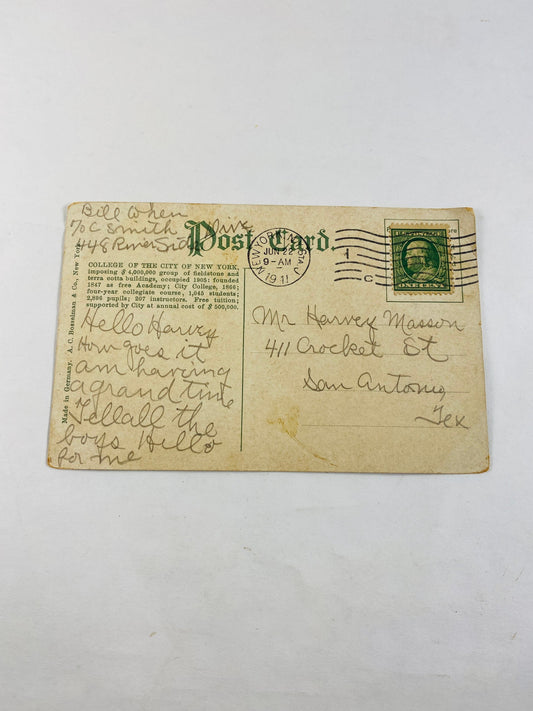 Bill When
℅ C Smith
448 River Side Drive
Post Card.
COLLEGE OF THE CITY OF NEW YORK,
imposing $4,000,000 group of fieldstone and
terra cotta buildings, occupied 1905; founded
1847 as free Academy; City College, 1866;
four-year collegiate course, 1,045 students;
2,896 pupils; 207 instructors. Free tuition;
supported by City at annual cost of $500,000.
Hello Harvey
How goes it
am having
a grand time
Tell all the
boys Hello
for me
Made in Germany. A. C. Bosselman & Co., New York
NEW YORK
STA J
JUN 22
9-AM
1911
1
C
ere
ONE CENT
Mr Harvey Masson
411 Crocket St
San Antonio
Tex